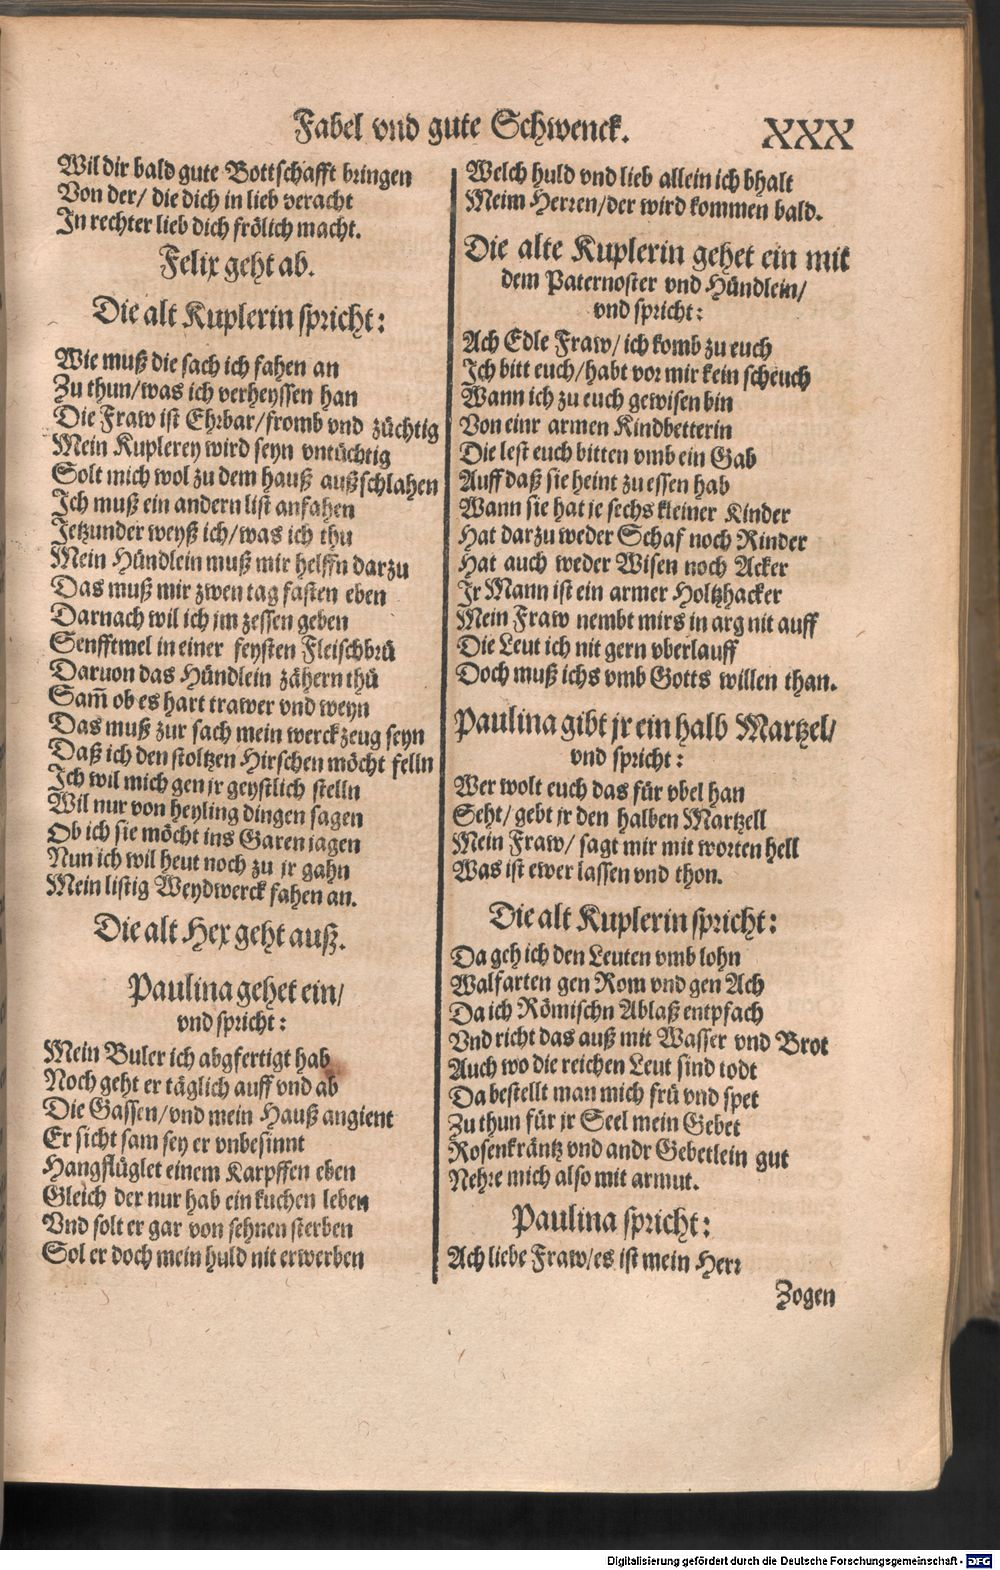 Fabel vnd gute Schwenck. XXX
Wil dir bald gute Bottschafft bringen
Von der/ die dich in lieb veracht
In rechter lieb dich frölich macht.
Felix geht ab.
Die alt Kuplerin spricht:
Wie muß die sach ich fahen an
Zu thun/ was ich verheyssen han
Die Fraw ist Ehrbar/ fromb vnd züchtig
Mein Kuplerey wird seyn vntüchtig
Solt mich wol zu dem hauß außschlahen
Ich muß ein andern list anfahen
Jetzunder weyß ich/ was ich thu
Mein Hündlein muß mir helffn darzu
Das muß mir zwen tag fasten eben
Darnach wil ich im zessen geben
Senfftmel in einer feysten Fleischbrü
Daruon das Hündlein zähern thü
Sam̃ ob es hart trawer vnd weyn
Das muß zur sach mein werckzeug seyn
Daß ich den stoltzen Hirschen möcht felln
Ich wil mich gen jr geystlich stelln
Wil nur von heyling dingen sagen
Ob ich sie möcht ins Garen jagen
Nun ich wil heut noch zu jr gahn
Mein listig Weydwerck fahen an.
Die alt Hex geht auß.
Paulina gehet ein/
vnd spricht:
Mein Buler ich abgfertigt hab
Noch geht er täglich auff vnd ab
Die Gassen/ vnd mein Hauß angient
Er sicht sam sey er vnbesinnt
Hangflüglet einem Karpffen eben
Gleich der nur hab ein kuchen leben
Vnd solt er gar von sehnen sterben
Sol er doch mein huld nit erwerben
Welch huld vnd lieb allein ich bhalt
Meim Herren/ der wird kommen bald.
Die alte Kuplerin gehet ein mit
dem Paternoster vnd Hündlein/
vnd spricht:
Ach Edle Fraw/ ich komb zu euch
Ich bitt euch/ habt vor mir kein scheuch
Wann ich zu euch gewisen bin
Von einr armen Kindbetterin
Die lest euch bitten vmb ein Gab
Auff daß sie heint zu essen hab
Wann sie hat je sechs kleiner Kinder
Hat darzu weder Schaf noch Rinder
Hat auch weder Wisen noch Acker
Ir Mann ist ein armer Holtzhacker
Mein Fraw nembt mirs in arg nit auff
Die Leut ich nit gern vberlauff
Doch muß ichs vmb Gotts willen than.
Paulina gibt jr ein halb Martzel/
vnd spricht:
Wer wolt euch das für vbel han
Seht/ gebt jr den halben Martzell
Mein Fraw/ sagt mir mit worten hell
Was ist ewer lassen vnd thon.
Die alt Kuplerin spricht:
Da geh ich den Leuten vmb lohn
Walfarten gen Rom vnd gen Ach
Da ich Römischn Ablaß entpfach
Vnd richt das auß mit Wasser vnd Brot
Auch wo die reichen Leut sind todt
Da bestellt man mich frü vnd spet
Zu thun für jr Seel mein Gebet
Rosenkräntz vnd andr Gebetlein gut
Nehre mich also mit armut.
Paulina spricht:
Ach liebe Fraw/ es ist mein Herr
Zogen
Digitalisierung gefördert durch die Deutsche Forschungsgemeinschaft - DFG